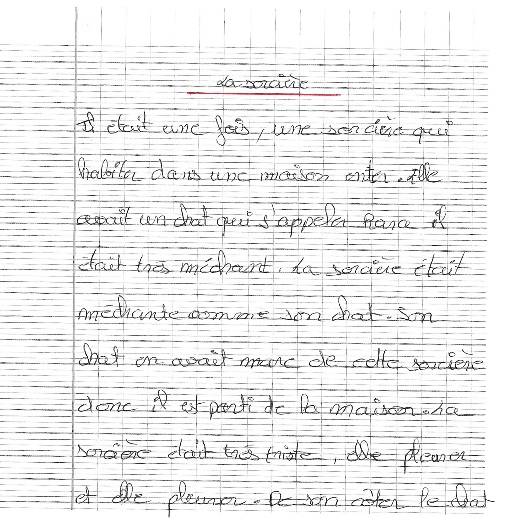 La sorcière
Il était une fois, une sorcière qui
habiter dans une maison enter. Elle
avait un chat qui s'appeler Hana il
était très méchant. La sorcière était
méchante comme son chat. Son
chat en avait marc de cette sorcière
donc il est parti de la maison. La
sorcière était très triste, elle pleurer
et elle pleurer. De son côter le chat